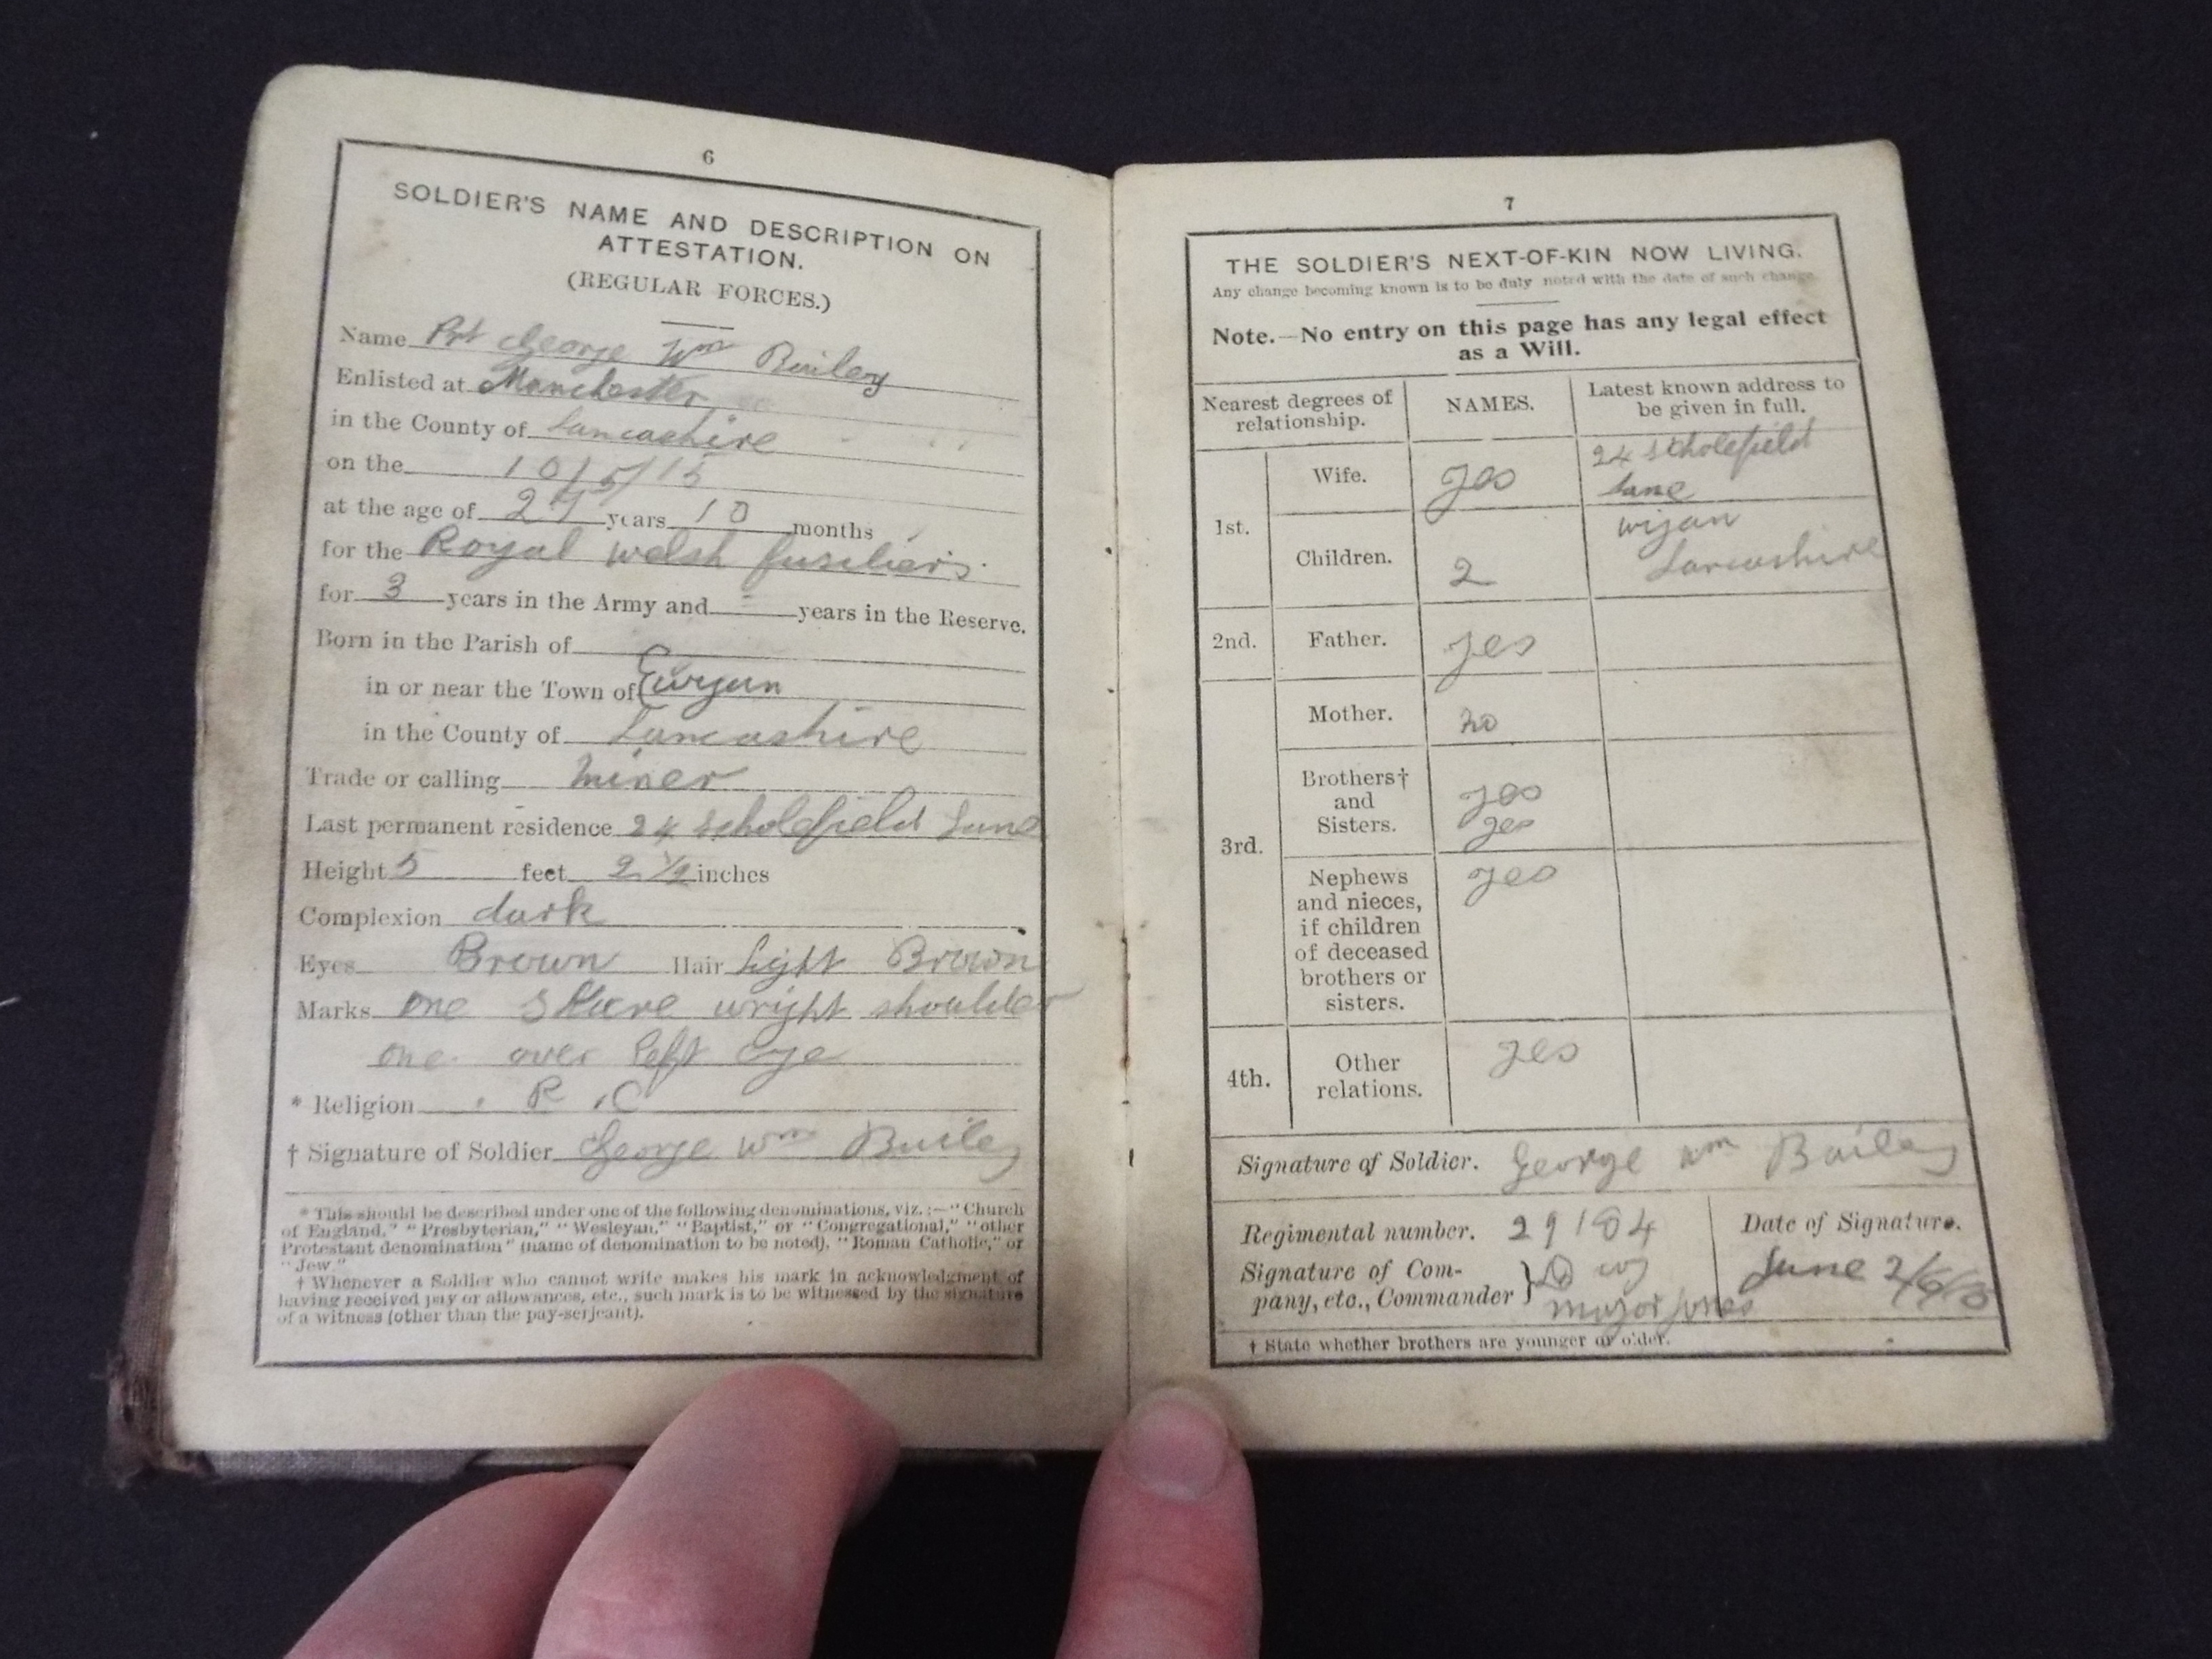 6
SOLDIER'S NAME AND DESCRIPTION ON
ATTESTATION.
(REGULAR FORCES.)
Name Pvt George Wm Bailey
Enlisted at Manchester
in the County of Lancashire
on the 10/5/15
at the age of 27 years 10 months
for the Royal welsh fusiliers
for 3 years in the Army and - years in the Reserve.
Born in the Parish of
in or near the Town of wigan
in the County of Lancashire
Trade or calling miner
Last permanent residence 24 scholefield Lane
Height 5 feet 2 1/2 inches
Complexion dark
Eyes Brown Hair light Brown
Marks one wright shoulder
one over left eye
* Religion R.C
† Signature of Soldier George Wm Bailey
* This should be described under one of the following denominations, viz. :—"Church
of England," "Presbyterian," "Wesleyan," "Baptist," or "Congregational," "other
Protestant denomination" (name of denomination to be noted), "Roman Catholic," or
"Jew."
† Whenever a Soldier who cannot write makes his mark in acknowledgment of
having received pay or allowances, etc., such mark is to be witnessed by the signature
of a witness (other than the pay-serjeant).
7
THE SOLDIER'S NEXT-OF-KIN NOW LIVING.
Any change becoming known is to be duly noted with the date of such change.
Note.—No entry on this page has any legal effect
as a Will.
Nearest degrees of
relationship.
NAMES.
Latest known address to
be given in full.
1st.
Wife.
yes
24 scholefield
Lane
Children.
2
wigan
Lancashire
2nd.
Father.
yes
3rd.
Mother.
no
Brothers†
and
Sisters.
yes
yes
Nephews
and nieces,
if children
of deceased
brothers or
sisters.
yes
4th.
Other
relations.
yes
Signature of Soldier. George Wm Bailey
Regimental number. 29184
Date of Signature.
Signature of Com-
pany, etc., Commander }
major Jones
June 2/6/15
† State whether brothers are younger or older.